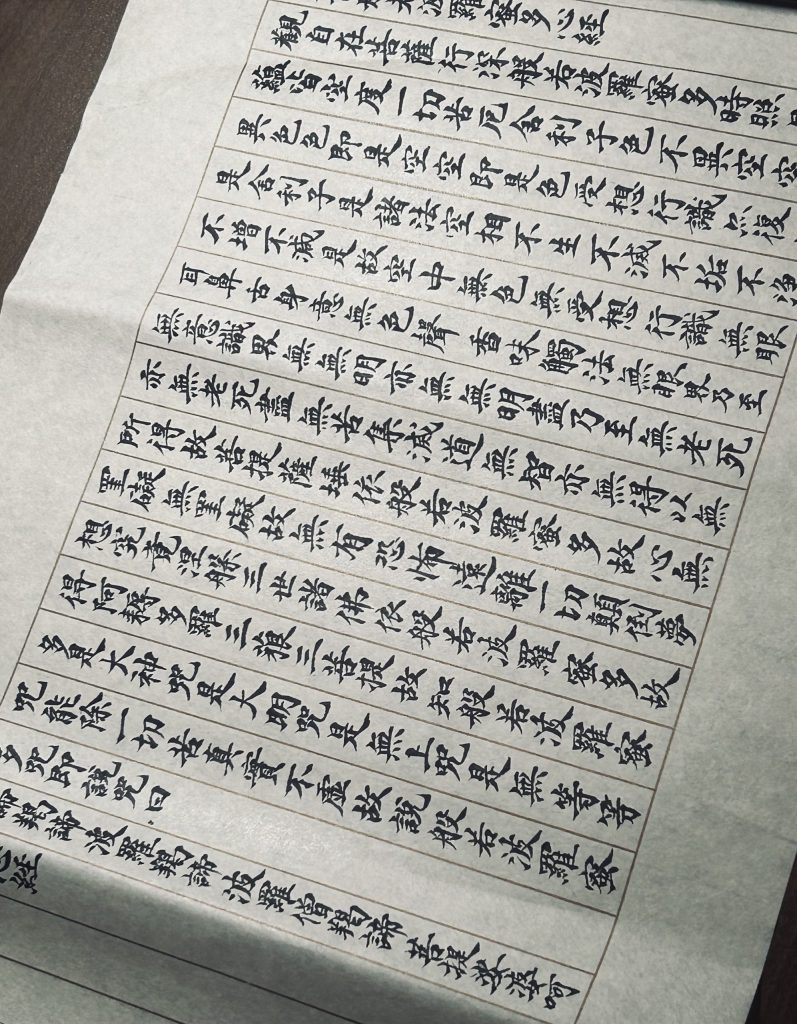 波羅蜜多心經
觀自在菩薩行深般若波羅蜜多時照
蘊皆空度一切苦厄舍利子色不異空空
異色色即是空空即是色受想行識亦復
是舍利子是諸法空相不生不滅不垢不淨
不增不減是故空中無色無受想行識無眼
耳鼻舌身意無色聲香味觸法無眼界乃至
無意識界無無明亦無無明盡乃至無老死
亦無老死盡無苦集滅道無智亦無得以無
所得故菩提薩埵依般若波羅蜜多故心無
罣礙無罣礙故無有恐怖遠離一切顛倒夢
想究竟涅槃三世諸佛依般若波羅蜜多故
得阿耨多羅三藐三菩提故知般若波羅蜜
多是大神咒是大明咒是無上咒是無等等
咒能除一切苦真實不虛故說般若波羅蜜
多咒即說咒曰
諦羯諦波羅羯諦波羅僧羯諦菩提娑婆呵
心經